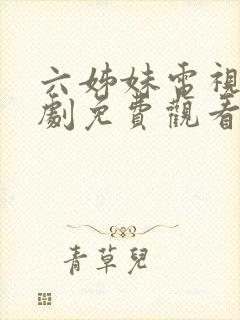 六姊妹電視
劇免費觀看
青草兒